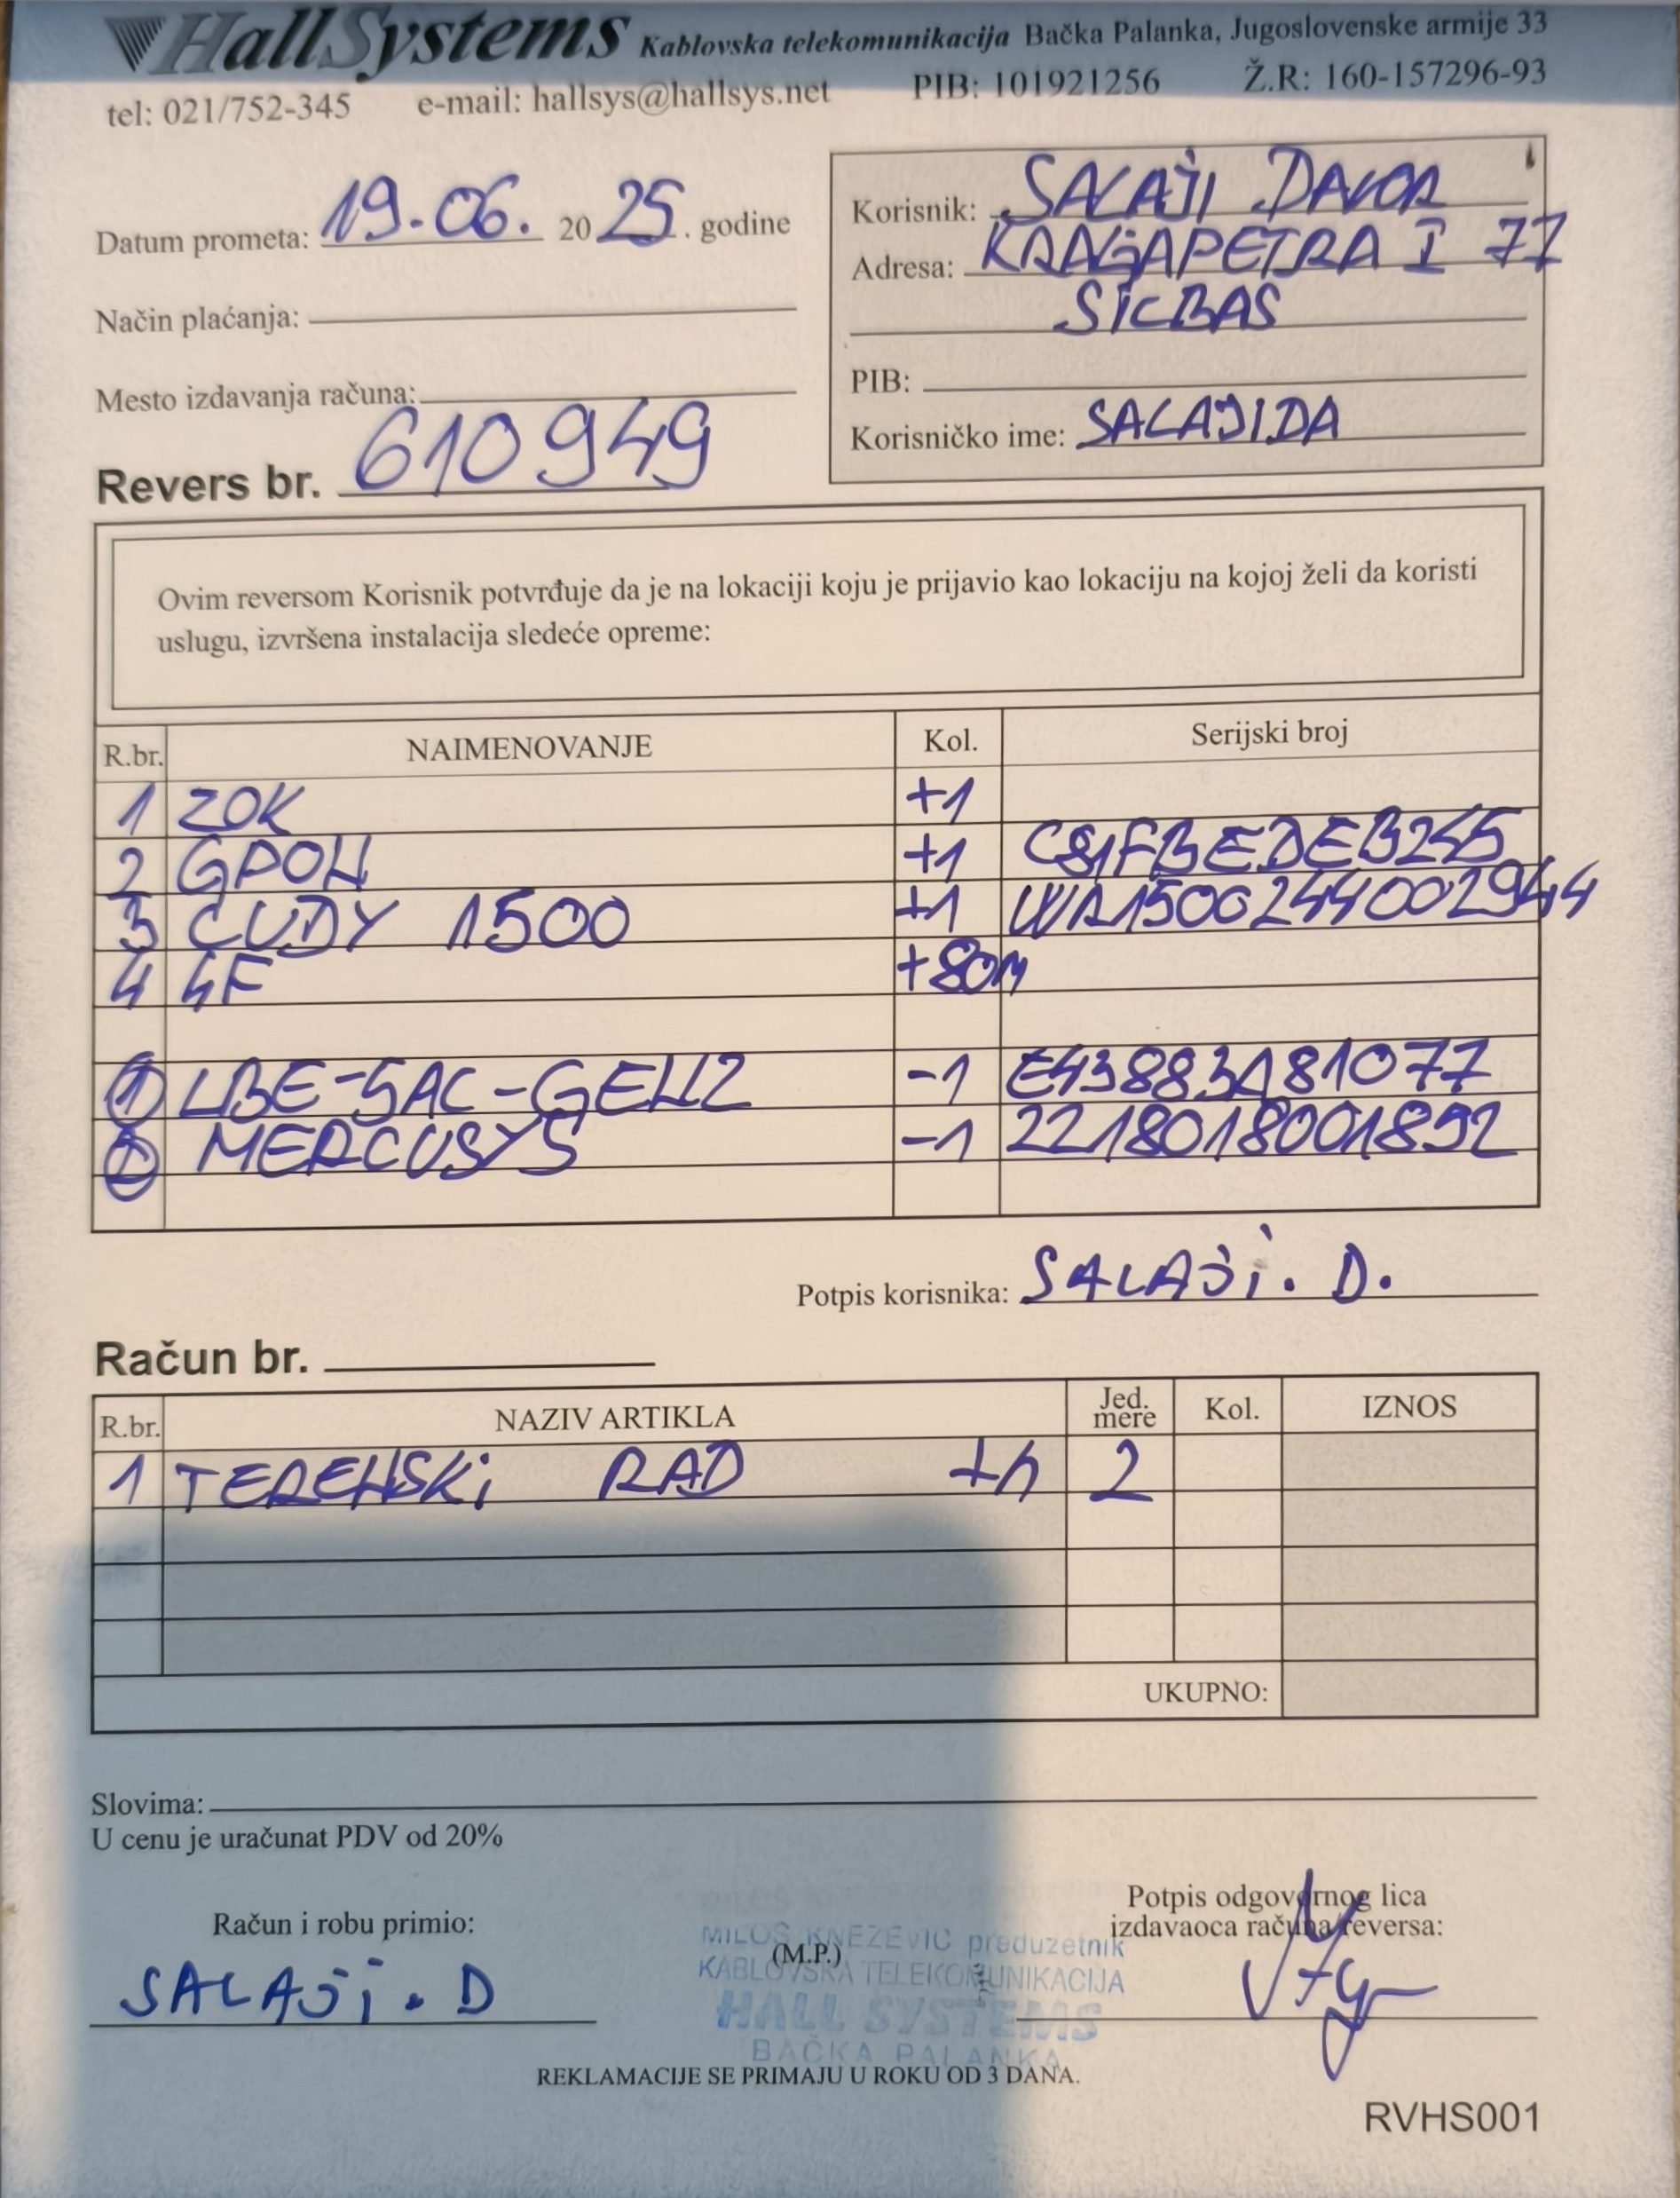 HallSystems Kablovska telekomunikacija Bačka Palanka, Jugoslovenske armije 33
tel: 021/752-345 e-mail: hallsys@hallsys.net PIB: 101921256 Ž.R: 160-157296-93
Datum prometa: 19.06. 2025. godine
Način plaćanja:
Mesto izdavanja računa:
Revers br. 610949
Korisnik: SALAJI DAVOR
Adresa: KRAGJAPETRA I 77
SICBAS
PIB:
Korisničko ime: SALAJIDA
Ovim reversom Korisnik potvrđuje da je na lokaciji koju je prijavio kao lokaciju na kojoj želi da koristi
uslugu, izvršena instalacija sledeće opreme:
R.br. NAIMENOVANJE Kol. Serijski broj
1 ZOK +1
2 GPON +1 CS1FBEDEB245
3 CUDY 1500 +1 WR1500244002944
4 4F +80M
1 LBE-5AC-GEN2 -1 E43883A81077
2 MERCUSYS -1 2218018001892
Potpis korisnika: SALAJi. D.
Račun br.
R.br. NAZIV ARTIKLA Jed. mere Kol. IZNOS
1 TERENSKi RAD +h 2
UKUPNO:
Slovima:
U cenu je uračunat PDV od 20%
Račun i robu primio:
SALAJi. D
MILOŠ KNEZEVIĆ preduzetnik
(M.P.)
KABLOVSKA TELEKOMUNIKACIJA
HALL SYSTEMS
BAČKA PALANKA
Potpis odgovornog lica
izdavaoca računa/reversa:
REKLAMACIJE SE PRIMAJU U ROKU OD 3 DANA.
RVHS001